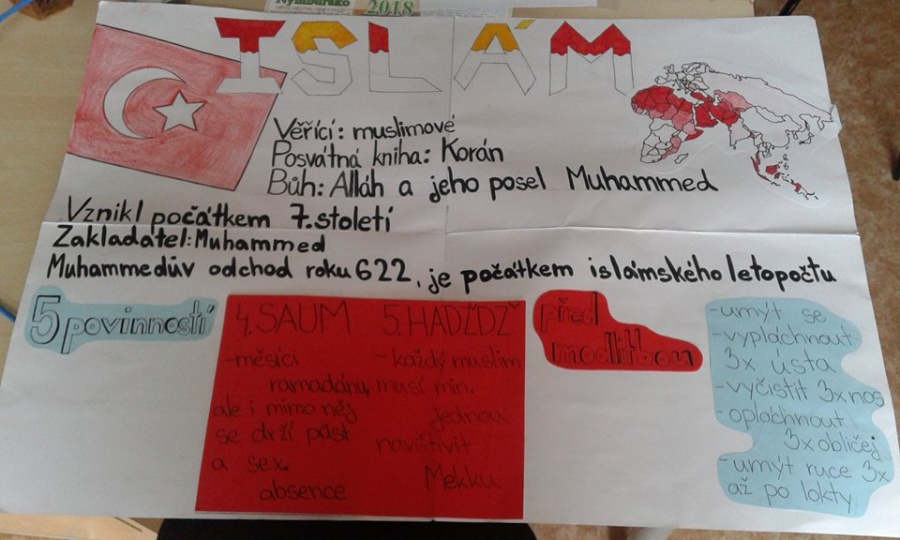 Nymbursko 2018
ISLÁM
Věřící: muslimové
Posvátná kniha: Korán
Bůh: Alláh a jeho posel Muhammed
Vznikl počátkem 7. století
Zakladatel: Muhammed
Muhammedův odchod roku 622, je počátkem islámského letopočtu
5 povinností
4. SAUM
-měsíci
ramadánu,
ale i mimo něj
se drží půst
a sex.
absence
5. HADŽDŽ
-každý muslim
musí min.
jednou
navštívit
Mekku
před
modlitbou
-umýt se
-vypláchnout
3x ústa
-vyčistit 3x nos
-opláchnout
3x obličej
-umýt ruce 3x
až po lokty